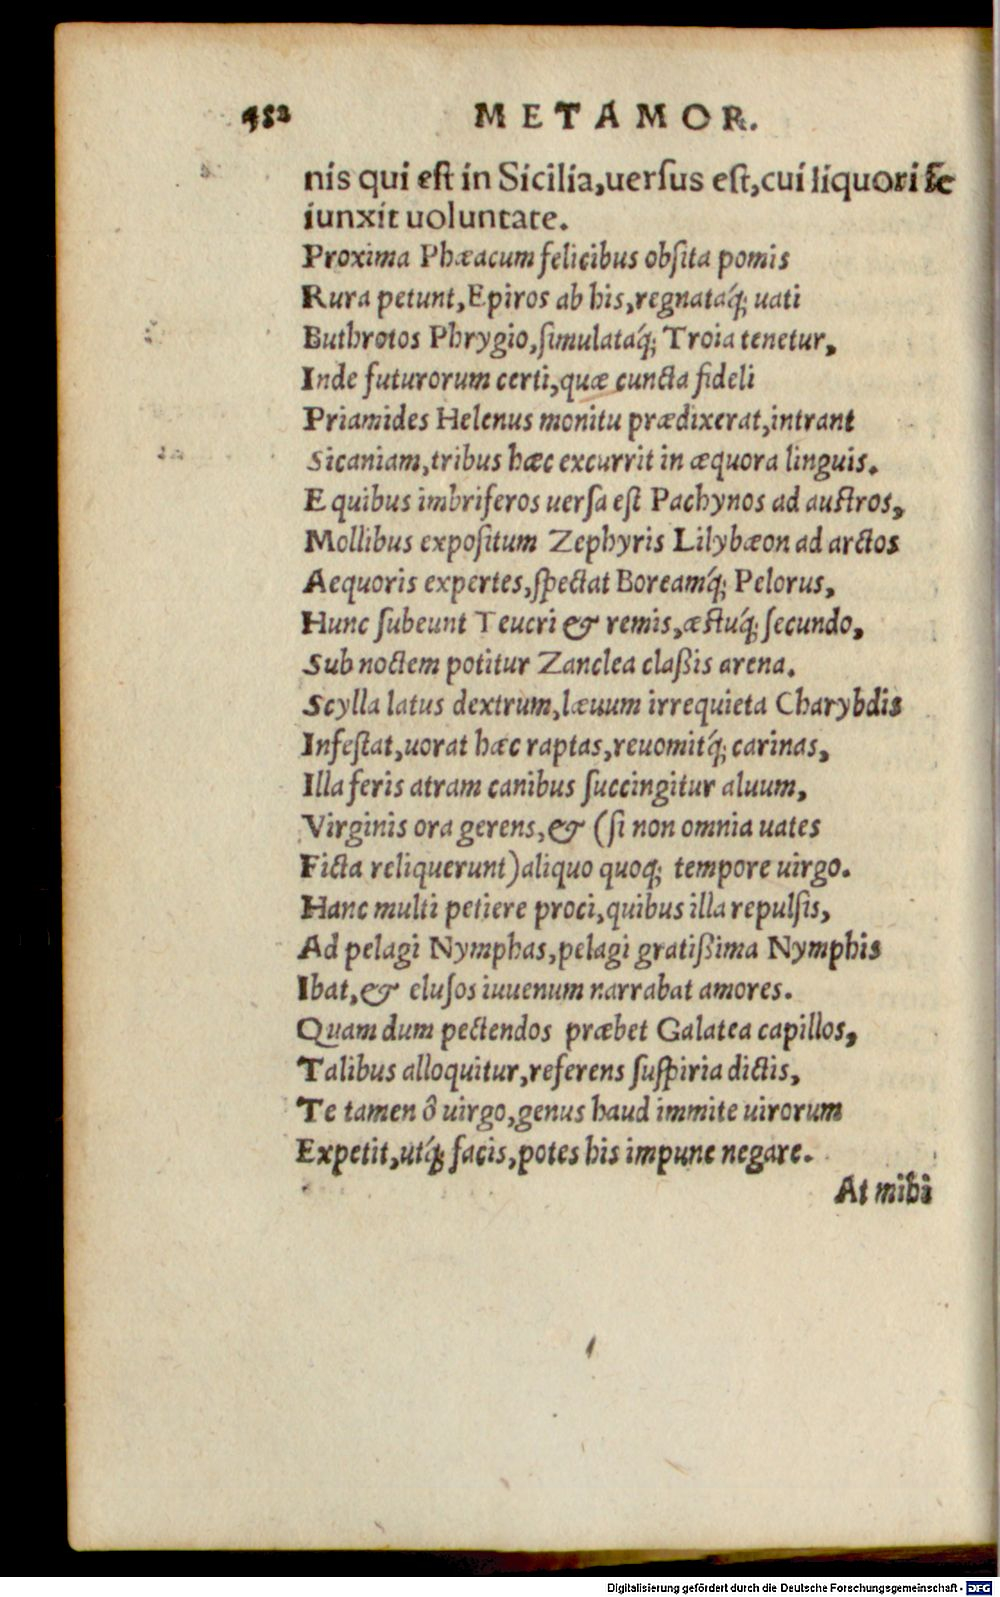 452 METAMOR.
nis qui eſt in Sicilia,uerſus eſt,cui liquori ſe
iunxit uoluntate.
Proxima Phæacum felicibus obſita pomis
Rura petunt,Epiros ab his,regnataq́; uati
Buthrotos Phrygio,ſimulataq́; Troia tenetur,
Inde futurorum certi,quæ cuncta fideli
Priamides Helenus monitu prædixerat,intrant
Sicaniam,tribus hæc excurrit in æquora linguis.
E quibus imbriferos uerſa eſt Pachynos ad auſtros,
Mollibus expoſitum Zephyris Lilybæon ad arctos
Aequoris expertes,ſpectat Boreamq́; Pelorus,
Hunc ſubeunt Teucri & remis,æſtuq́; ſecundo,
Sub noctem potitur Zanclea claßis arena.
Scylla latus dextrum,læuum irrequieta Charybdis
Infeſtat,uorat hæc raptas,reuomitq́; carinas,
Illa feris atram canibus ſuccingitur aluum,
Virginis ora gerens,& (ſi non omnia uates
Ficta reliquerunt)aliquo quoq; tempore uirgo.
Hanc multi petiere proci,quibus illa repulſis,
Ad pelagi Nymphas,pelagi gratißima Nymphis
Ibat,& eluſos iuuenum narrabat amores.
Quam dum pectendos præbet Galatea capillos,
Talibus alloquitur,referens ſuſpiria dictis,
Te tamen ô uirgo,genus haud immite uirorum
Expetit,utq́; facis,potes his impune negare.
At mihi
Digitalisierung gefördert durch die Deutsche Forschungsgemeinschaft - DFG